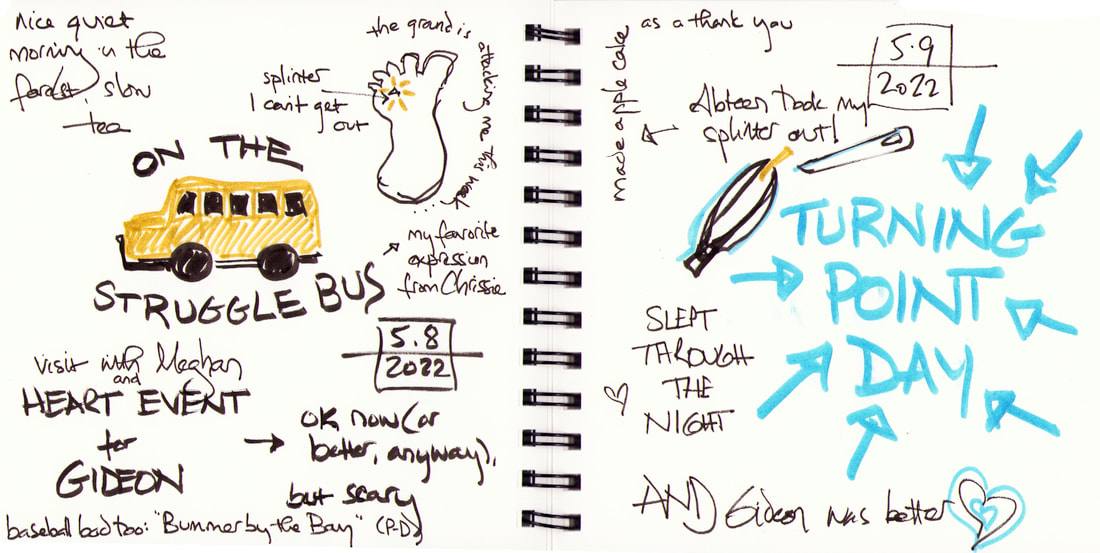 nice quiet
morning in the
forest, slow
tea
the ground is attacking me this week
splinter
I can't get
out
ON THE
STRUGGLE BUS
my favorite
expression
from Chrissie
5.8
2022
visit with Meghan
and
HEART EVENT
for
GIDEON
→ ok now (or
better, anyway),
but scary
baseball bad too: "Bummer by the Bay" (P-D)
made apple cake
as a thank you
5.9
2022
Abteen took my
splinter out!
TURNING
POINT
DAY
SLEPT
THROUGH
THE
NIGHT
AND Gideon was better